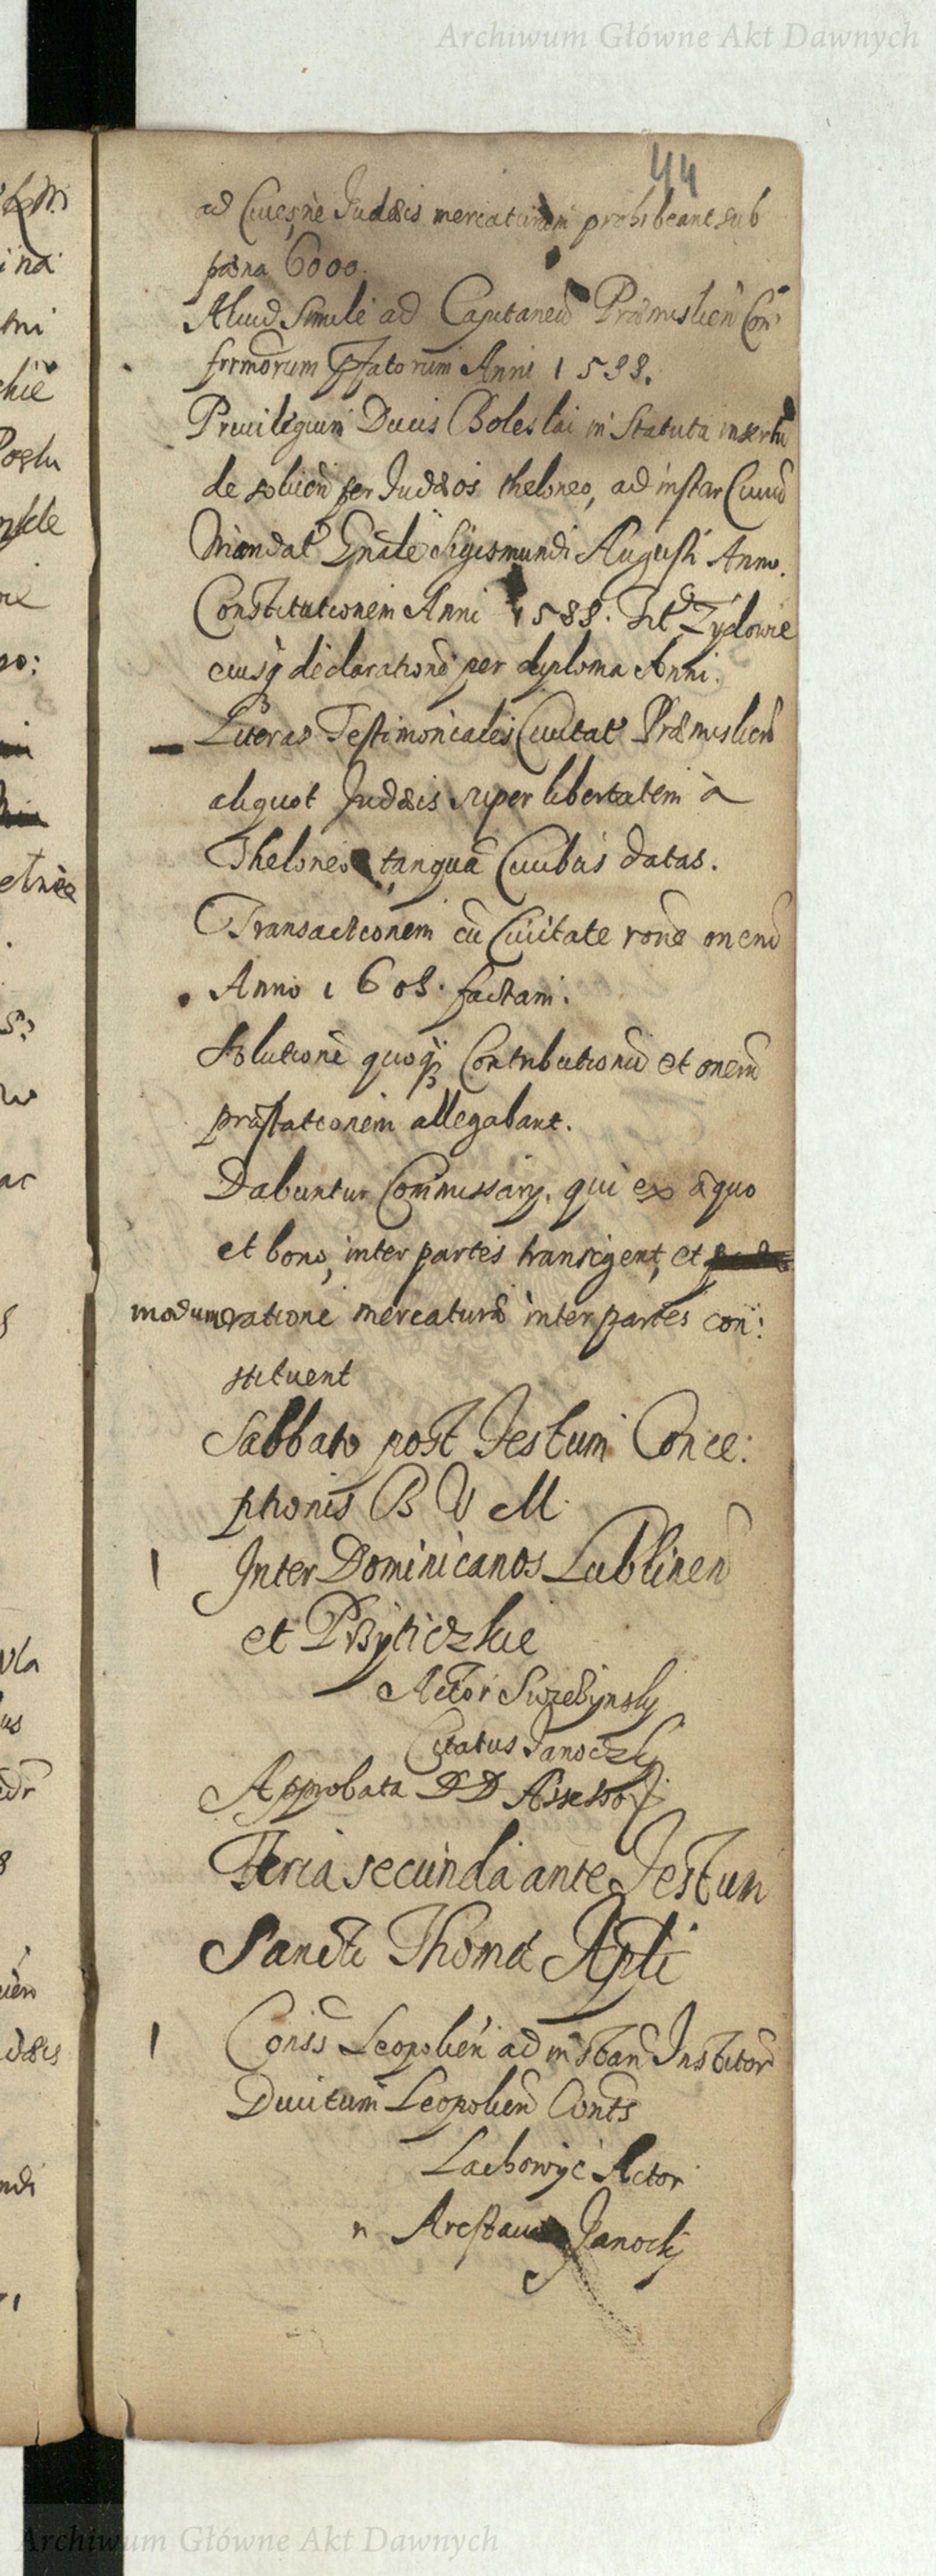 Archiwum Główne Akt Dawnych
44
ad Cives, ne Judæis mercaturam prohibeant sub
pæna 6000.
Aliud Simile ad Capitaneũ Præmislien̄ Con
firmãorum Pfatorum Anni 1588.
Privilegium Ducis Boleslai in Statuta insertũ
de solven̄ per Judæos theloneo, ad instar Civiũ
Mandat Gñale Sigismundi Augusti Anno.
Constitutionem Anni 1588. Tit Zydowie
eiusq̧ declarationẽ per diploma Anni.
Literas Testimoniales Civitat Præmislien̄
aliquot Judæis super libertatem à
Theloneo tanquã Civibus datas.
Transactionem cũ Civitate rone onerũ
Anno 1608. factam.
Solutionẽ quoq̧ Contributionũ et onerũ
præstationem allegabant.
Dabuntur Commissarij, qui ex æquo
et bono, inter partes transigent, et
modum ratione mercaturæ inter partes con:
stituent
Sabbato post Festum Conce:
ptionis B V M.
1 Inter Dominicanos Lublinen̄
et Przyticzkie
Actor Swrebynsky
Citatus Janoczky
Approbata DD Assesso
Feria secunda ante Festum
Sancti Thomæ Apli
1 Conss Leopolien̄ ad instan̄ Institor
Divitum Leopolien̄ Conts
Lachowÿc Actor
n Janockj
Archiwum Główne Akt Dawnych